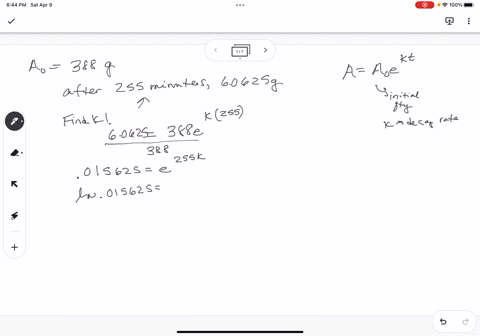 6:44 PM Sat Apr 9
100%
A₀ = 388 g
after 255 minutes, 6.0625g
Find k!
6.0625 = 388e^k(255)
388
.015625 = e^255k
ln .015625 =
A = A₀e^kt
initial
qty
k = decay rate